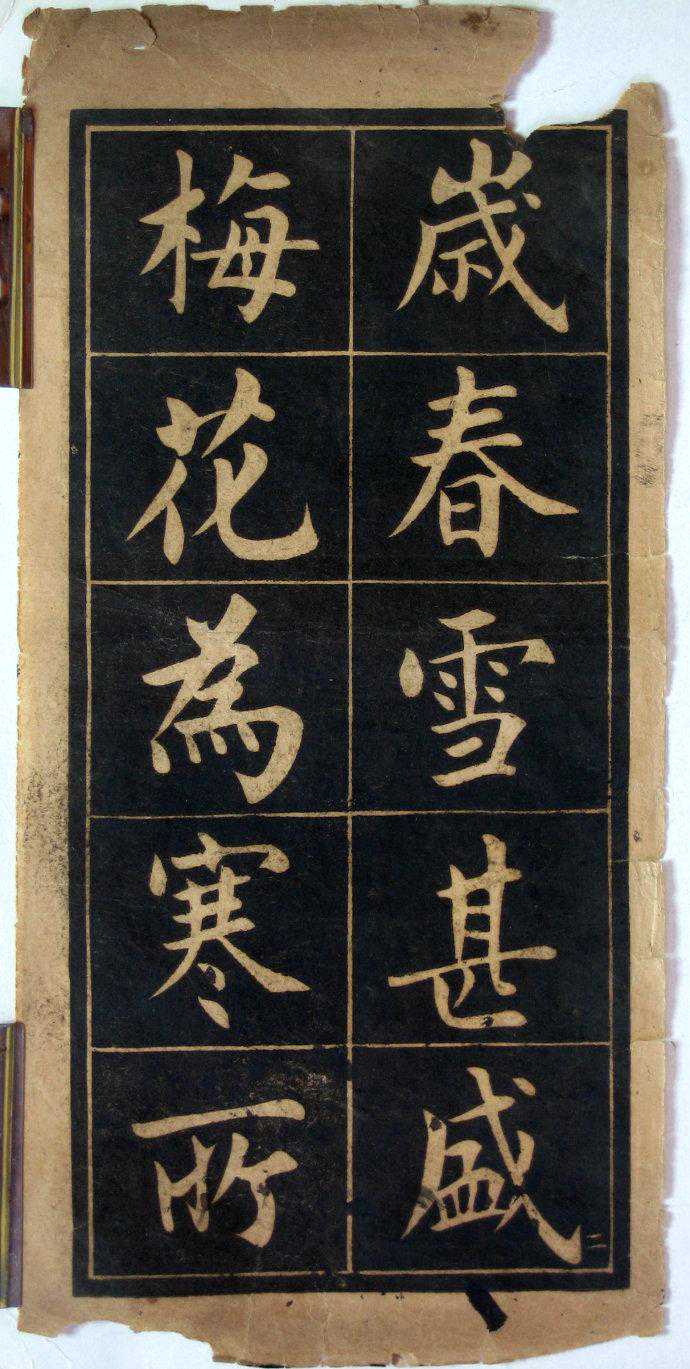 歲春雪甚盛
二
梅花為寒所